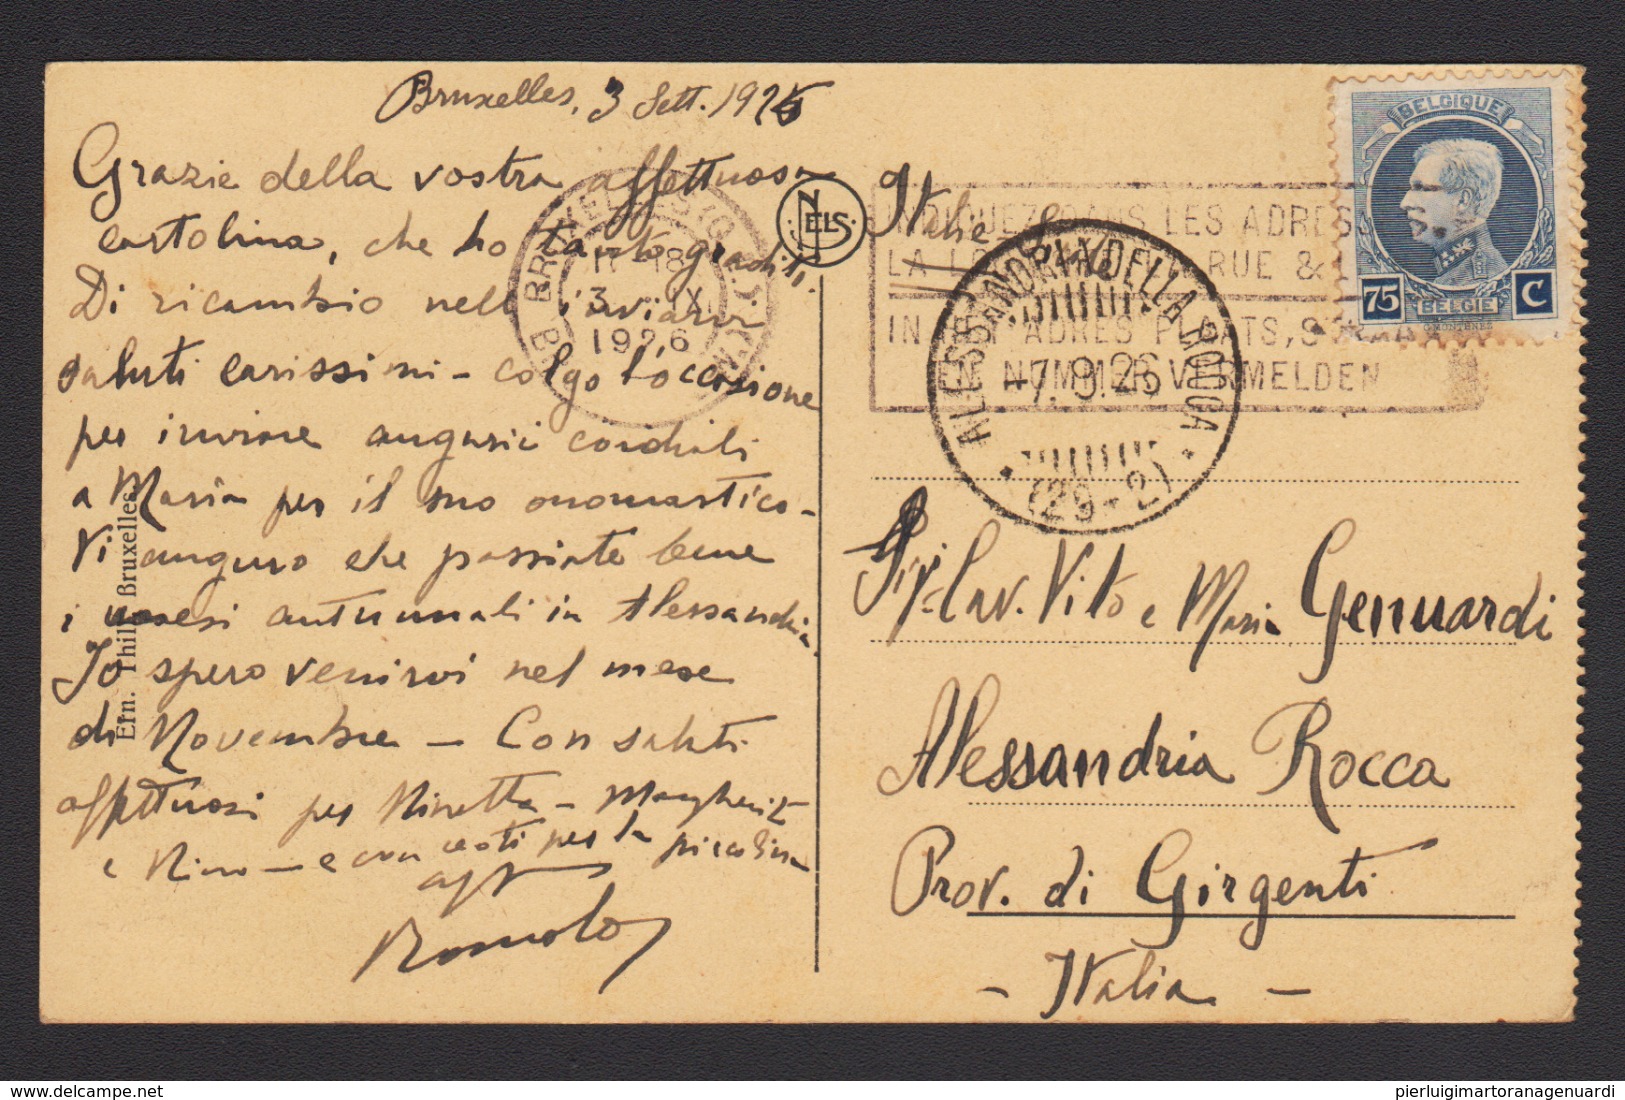 Bruxelles, 3 Sett. 1926
Grazie della vostra affettuosa
cartolina, che ho tanto gradito.
Di ricambio nell'inviarvi
saluti carissimi - colgo l'occasione
per inviare auguri cordiali
a Maria per il suo onomastico -
Vi auguro che passiate bene
i mesi autunnali in Alessandria
Io spero venirvi nel mese
di Novembre - Con saluti
affettuosi per Ninetta - Margherita
e Nino - e per la piccolina
aff
Romolo
Ern. Thill, Bruxelles.
NELS
BRUXELLES
17-18
3 IX
1926
BRUSSEL
Italie
INDIQUEZ DANS LES ADRESSES
LA LOCALITE LA RUE & LE
IN HET ADRES PLAATS, STRAAT
EN NUMMER VERMELDEN
BELGIQUE
75 C
BELGIE
G.MONTENEZ
ALESSANDRIA DELLA ROCCA
-7.9.26
(29-2)
Sig. Cav. Vito e Maria Genuardi
Alessandria Rocca
Prov. di Girgenti
- Italia -
delcampe.net
pierluigimartoranagenuardi